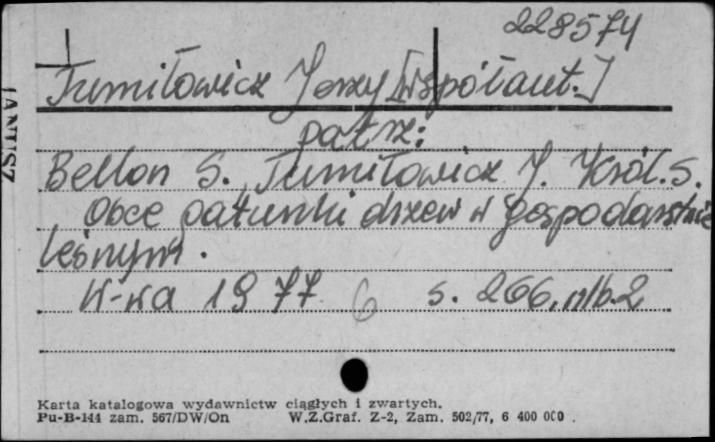 228574
Tumiłowicz Jerzy [współaut.]
patrz:
Bellon S., Tumiłowicz J. Król. S.
Obce gatunki drzew w gospodarstwie
leśnym.
W-wa 1977 6 s. 266, nlb. 2
Karta katalogowa wydawnictw ciągłych i zwartych.
Pu-B-144 zam. 567/DW/On W.Z.Graf. Z-2, Zam. 502/77, 6 400 000
JANUSZ